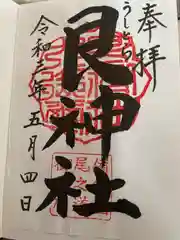 奉拝
うしとら
艮神社
令和三年五月四日